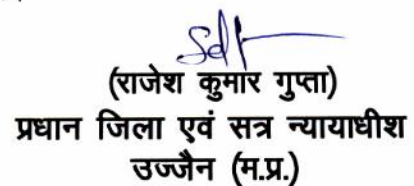 Sd/-
(राजेश कुमार गुप्ता)
प्रधान जिला एवं सत्र न्यायाधीश
उज्जैन (म.प्र.)